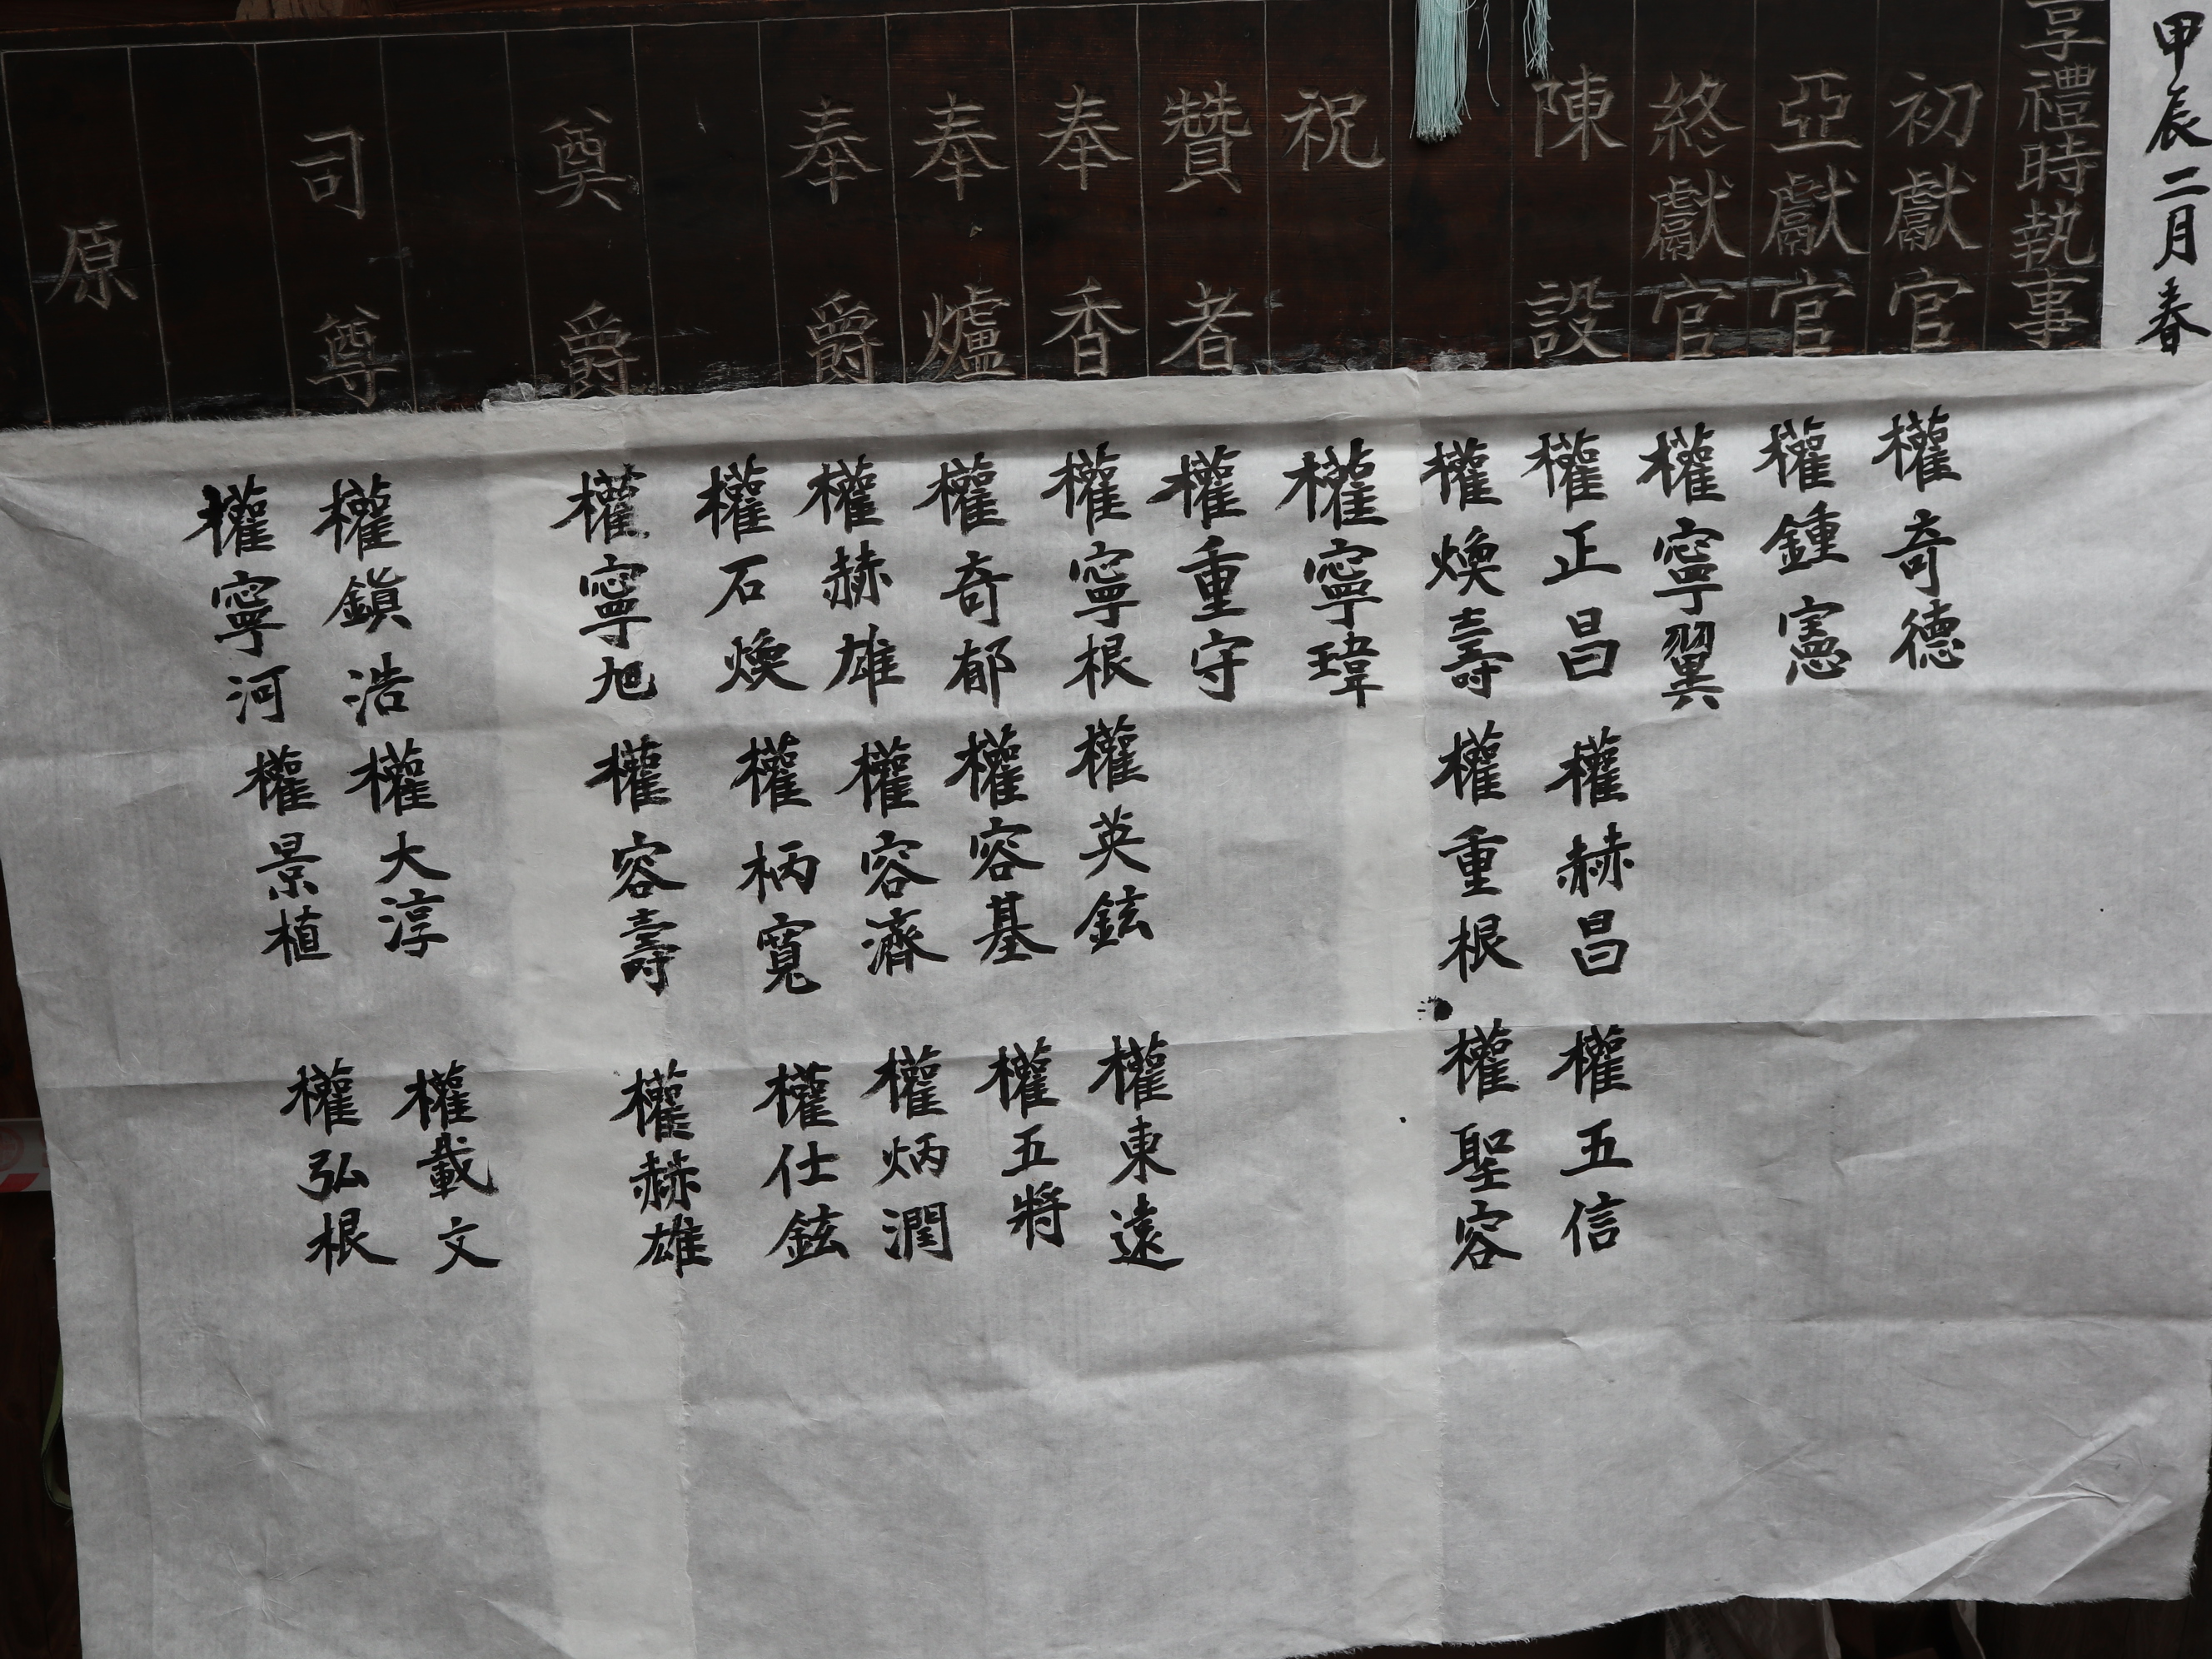 甲辰二月春
享禮時執事
初獻官
亞獻官
終獻官
陳設
祝
贊者
奉香
奉爐
奉爵
奠爵
司尊
原
權奇德
權鍾憲
權寧翼
權正昌 權赫昌 權五信
權煥壽 權重根 權聖容
權寧瑋
權重守
權寧根 權英鉉 權東遠
權奇郁 權容基 權五將
權赫雄 權容濟 權炳潤
權石煥 權柄寬 權仕鉉
權寧旭 權容壽 權赫雄
權鎭浩 權大淳 權載文
權寧河 權景植 權弘根